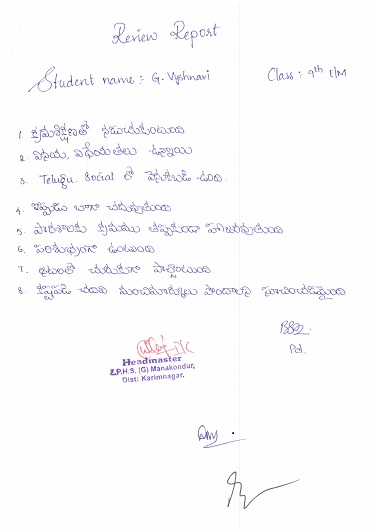 Review Report
Student name :- G. Vyshnavi Class : 9th E/M
1. క్రమశిక్షణతో నడుచుకుంటుంది
2. వినయ, విధేయతలు ఉన్నాయి
3. Telugu. Social లో వెనుకబడి ఉంది.
4. ఇప్పుడు బాగా చదువుతుంది
5. పాఠశాలకు క్రమము తప్పకుండా హాజరవుతుంది
6. పరిశుభ్రంగా ఉంటుంది
7. ఆటలలో చురుకుగా పాల్గొంటుంది
8. కష్టపడి చదివి మంచిమార్కులు పొందాలని సూచించడమైనది
I/C
Headmaster
Z.P.H.S. (G) Manakondur,
Dist: Karimnagar.